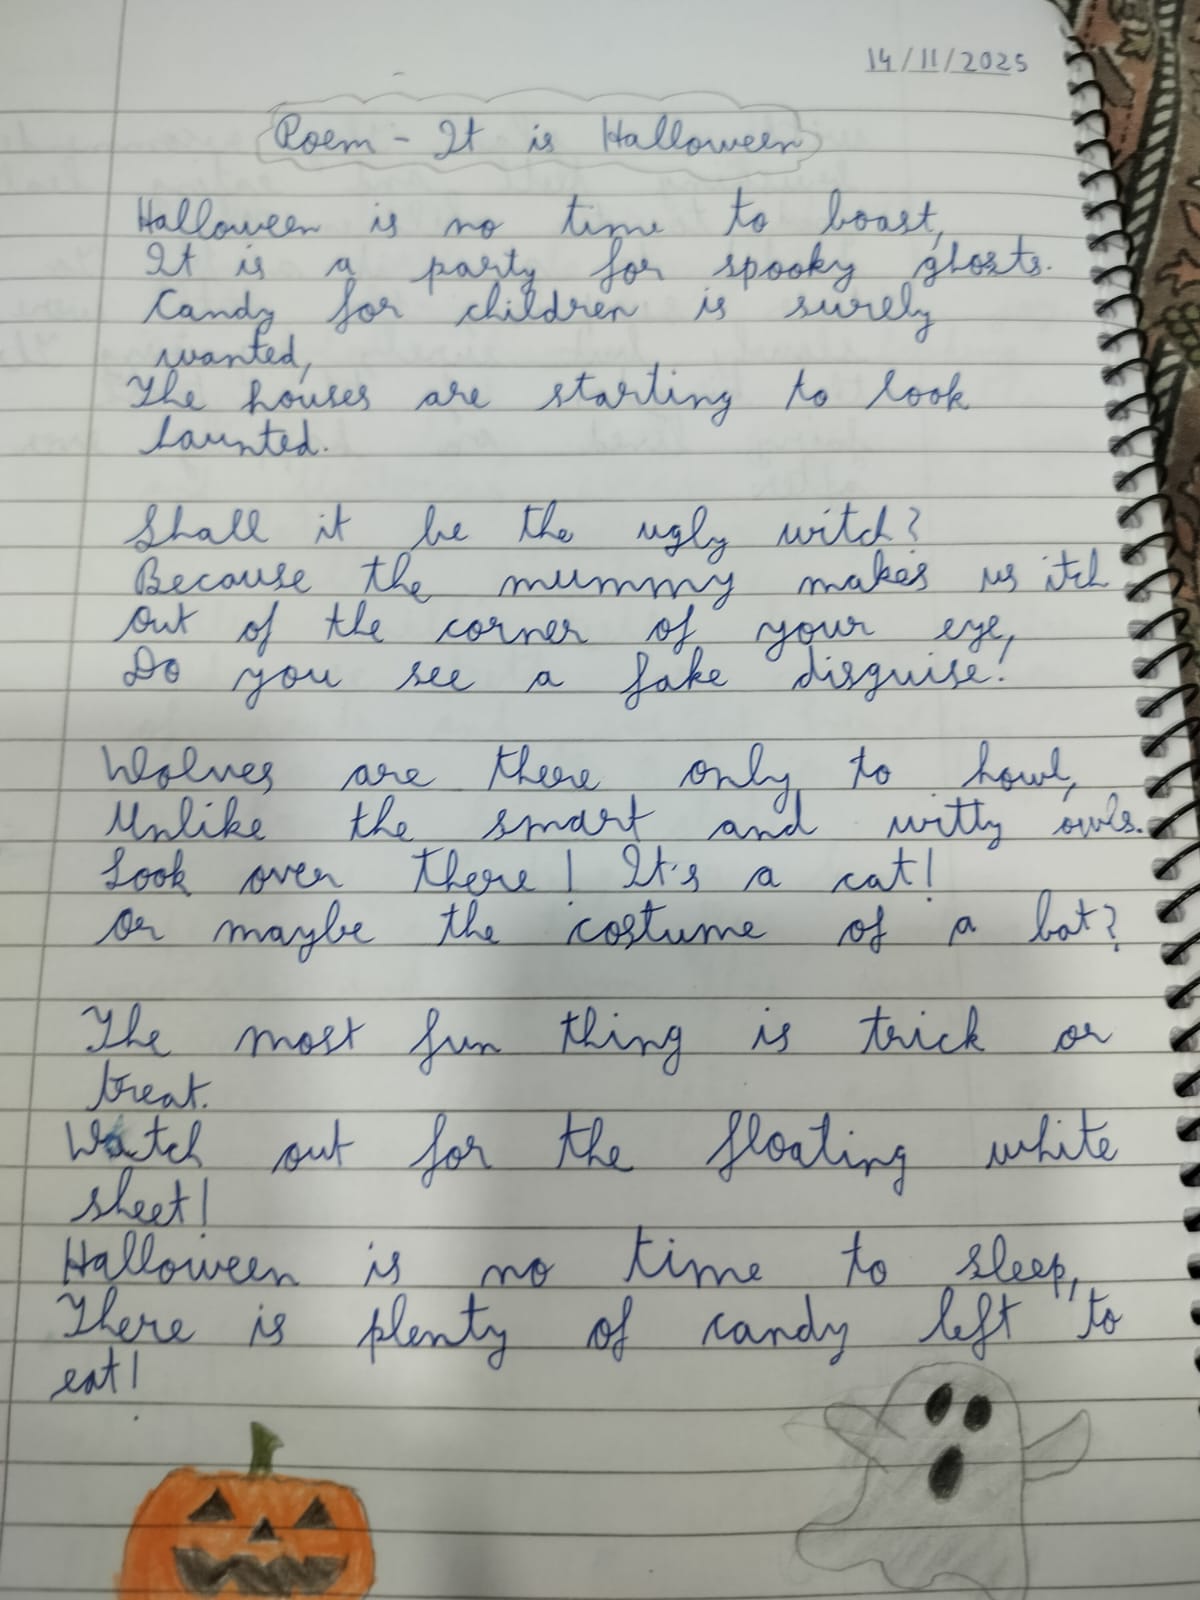 14/11/2025
Poem - It is Halloween
Halloween is no time to boast,
It is a party for spooky ghosts.
Candy for children is surely
wanted,
The houses are starting to look
haunted.
Shall it be the ugly witch?
Because the mummy makes us itch
Out of the corner of your eye,
Do you see a fake disguise!
Wolves are there only to howl,
Unlike the smart and witty owls.
Look over there! It's a cat!
Or maybe the costume of a bat?
The most fun thing is trick or
treat.
Watch out for the floating white
sheet!
Halloween is no time to sleep,
There is plenty of candy left to
eat!